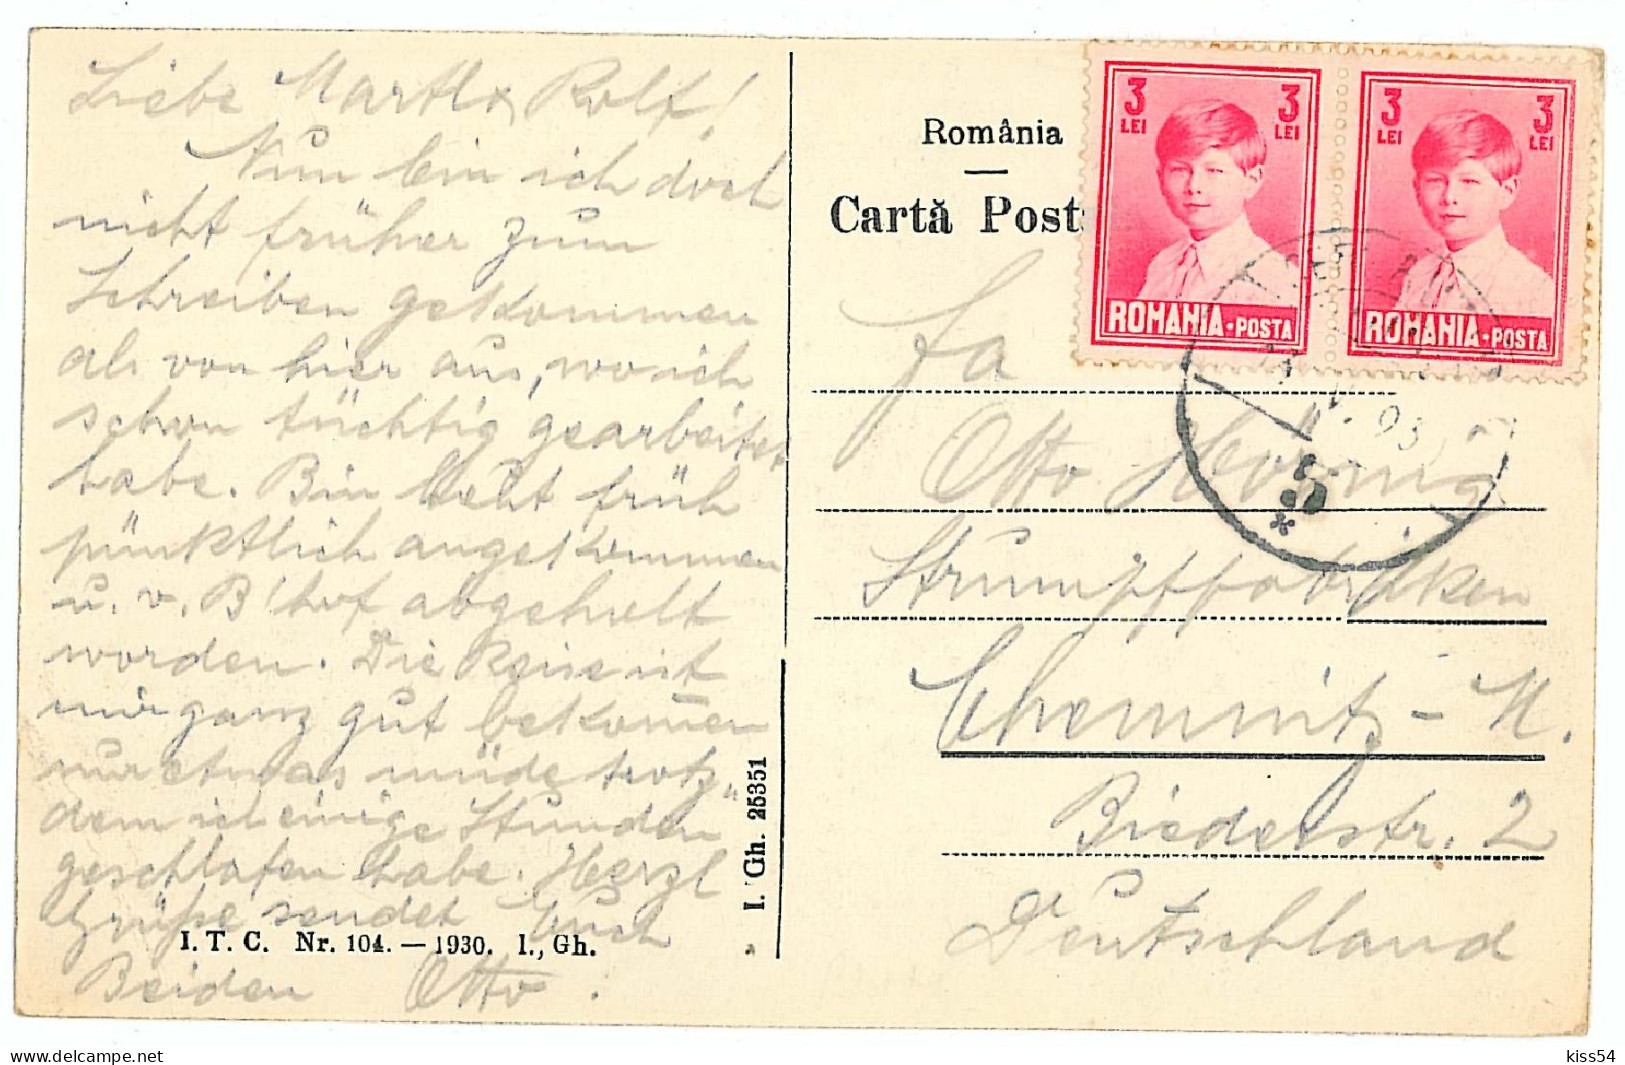 Liebe Martl u. Rolf!
Nun bin ich doch
nicht früher zum
Schreiben gekommen
als von hier aus, wo ich
schon tüchtig gearbeitet
habe. Bin heut früh
pünktlich angekommen
u. v. B'hof abgeholt
worden. Die Reise ist
mir ganz gut bekom̅en
nur etwas müde trotz„
dem ich einige Stunden
geschlafen habe. Herzl
Grüße sendet Euch
Beiden Otto.
I. T. C. Nr. 104. — 1930. I., Gh.
I. Gh. 25351
România
Cartă Post
3 LEI 3 LEI
ROMANIA·POSTA
3 LEI 3 LEI
ROMANIA·POSTA
Fa
Otto
Strumpffabriken
Chemnitz - N.
Biederstr. 2
Deutschland
kiss54